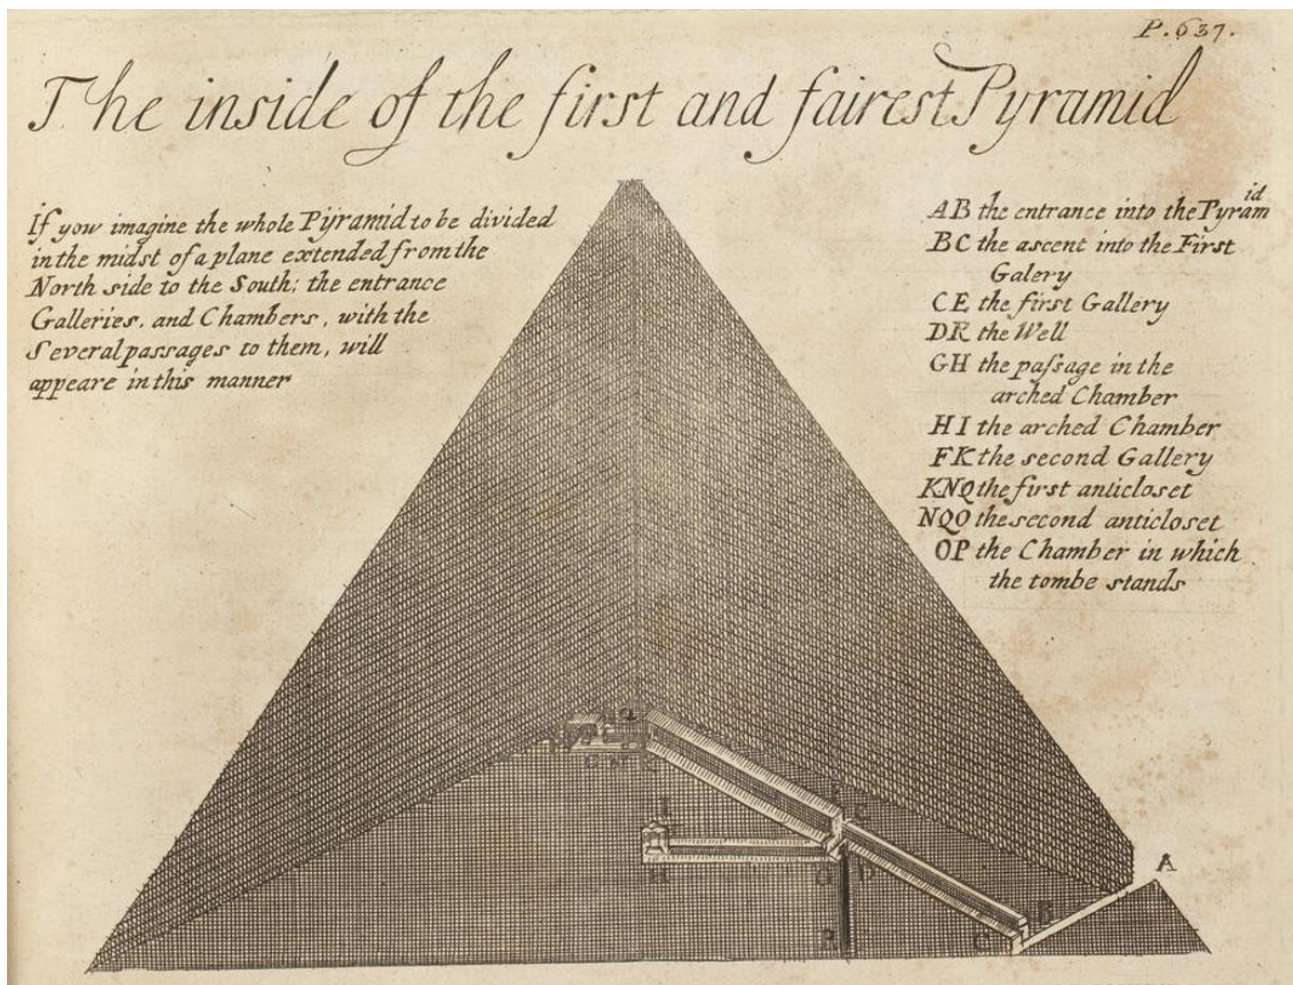 P. 637.
The inside of the first and fairest Pyramid
If yow imagine the whole Pyramid to be divided
in the midst of a plane extended from the
North side to the South; the entrance
Galleries, and Chambers, with the
Several passages to them, will
appeare in this manner
AB the entrance into the Pyram
id
BC the ascent into the First
Galery
CE the first Gallery
DR the Well
GH the paſsage in the
arched Chamber
HI the arched Chamber
FK the second Gallery
KNQ the first anticloset
NQO the second anticloset
OP the Chamber in which
the tombe stands
Q
I
E
H
G D
A
B
R
C